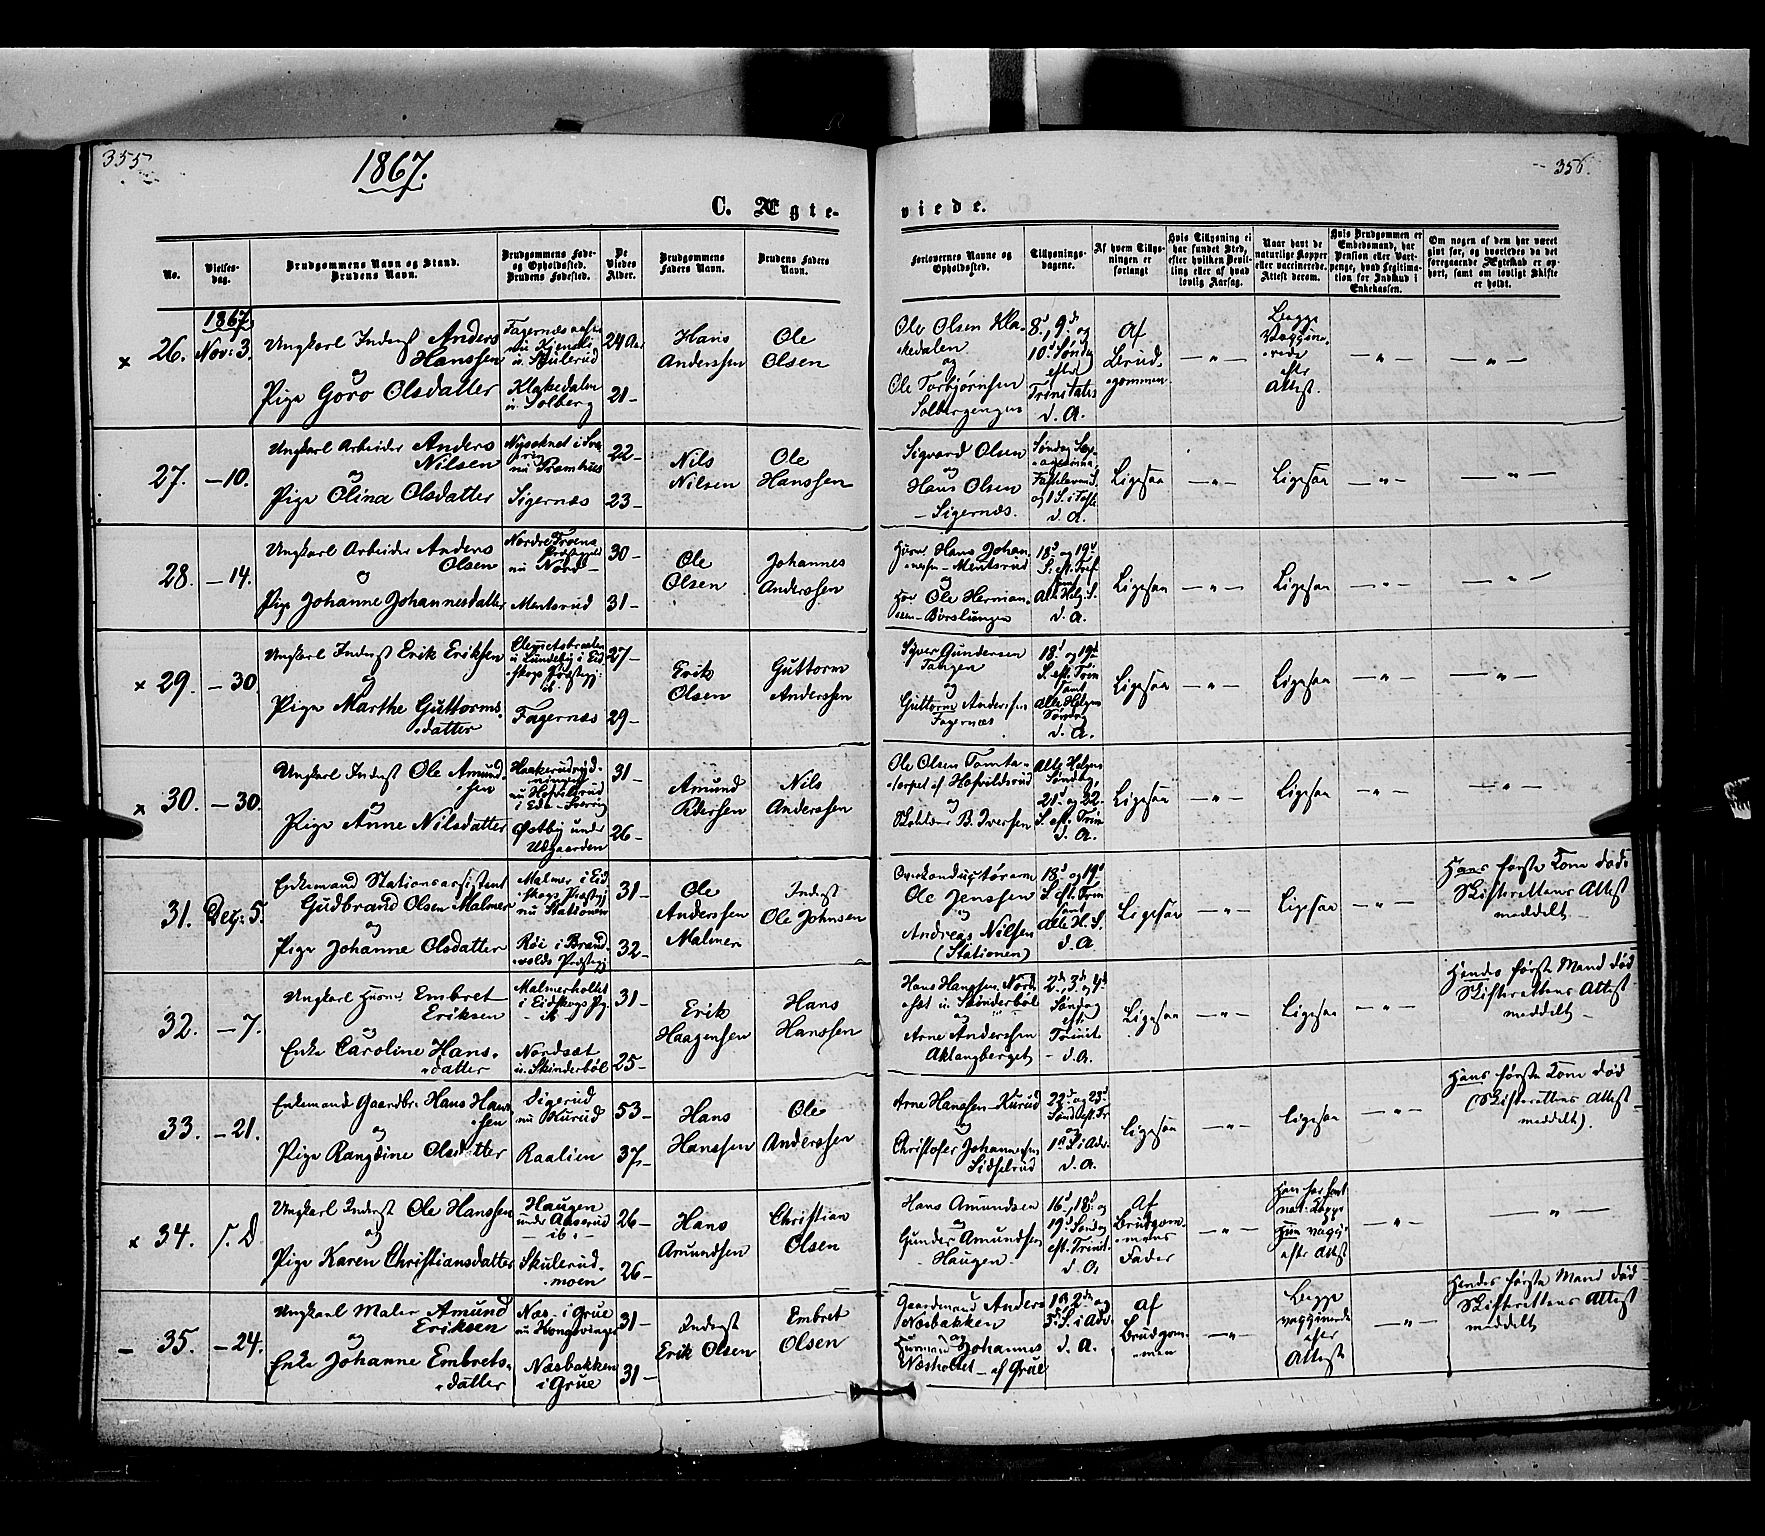 355
1867.
356.
C. Ægte-
viede.
No.
Vielses-
dag.
Brudgommens Navn og Stand.
Brudens Navn.
Brudgommens Føde-
og Opholdssted.
Brudens Fødested.
De
Viedes
Alder.
Brudgommens
Faders Navn.
Brudens Faders
Navn.
Forlovernes Navne og
Opholdssted.
Tillysnings-
dagene.
Af hvem Tillys-
ningen er
forlangt
Hvis Tillysning ei
har fundet Sted,
efter hvilken Bevil-
ling eller af hvad
lovlig Aarsag.
Naar havt de
naturlige Kopper
eller vaccinerede.
Attest derom.
Hvis Brudgommen er
Embedsmand, har
Pension eller Vart-
penge, hvad Legitima-
tion for Indskud i
Enkekassen.
Om nogen af dem har været
gift før, og hvorledes da det
foregaaende Ægteskab er op-
hørt, samt om lovligt Skifte
er holdt.
1867
x 26. Nov: 3.
Ungkarl Inderst Anders
Hanssen
og
Pige Goro Olsdatter
Fagernæs
u. Skulerud
Klakedalen
u. Solberg
24 Aar
21-
Hans
Anderssen
Ole
Olsen
Ole Olsen Kla-
kedalen
og
Ole Torbjørnsen
Solbergengen
8d, 9d og
10d Søndag
efter
Trinitatis
d. A.
Af
Brud-
gommen
— " —
Begge
Vaggine-
rede
eftr
Attest.
— " —
— " —
27. — 10.
Ungkarl Arbeider Anders
Nilsen
og
Pige Olina Olsdatter
Sigernæs
22-
23-
Nils
Nilsen
Ole
Hanssen
Sigvard Olsen
og
Hans Olsen
— Sigernæs.
d. A.
Ligesaa
— " —
Ligesaa
— " —
— " —
28. — 14.
Ungkarl Arbeider Anders
Olsen
og
Pige Johanne Johannesdatter
Nordre
nu Nord-
Mentsrud
30-
31-
Ole
Olsen
Johannes
Anderssen
Husm. Hans Johan-
nesen - Mentsrud
og
Ole Herman-
sen - Børslungen
18d og 19d
S. eft. Tref
samt
Alle Helg. S.
d. A.
Ligesaa
— " —
Ligesaa
— " —
— " —
x 29. — 30.
Ungkarl Inderst Erik Eriksen
og
Pige Marthe Guttorms-
datter
u Lundeby i Eid
skogs Præstegj:
ib
Fagernæs
27-
29-
Erik
Olsen
Guttorm
Anderssen
Syver Gundersen
Tangen
og
Guttorm Anderssen
Fagernæs
18d og 19d
S. eft. Trin
samt
Alle Helgen
Søndag
d. A.
Ligesaa
— " —
Ligesaa
— " —
— " —
x 30. — 30.
Ungkarl Inderst Ole Amund-
sen
og
Pige Anne Nilsdatter
Haakerudryd-
ningen
i Eda - Sverig
Østby under
Udgaarden
31-
26-
Amund
Nils
Anderssen
Ole Olsen Tomta-
torpet af Hofvildsrud
og
B. Iversen
Alle Helgens
Søndag
21d og 22-
S. eft. Trin
d. A.
Ligesaa
— " —
Ligesaa
— " —
— " —
31. Dec: 5.
Enkemand Stationsassistent
Gudbrand Olsen Malmer
og
Pige Johanne Olsdatter
Malmer i Eid
skogs Præstegj
nu Stationen
Røi i Brand-
volds Præstegj
31-
32-
Ole
Anderssen
Malmer
Inderst
Ole Johnsen
Overconducteuren
Ole Jenssen
og
Andreas Nilsen
(Stationen)
18d og 19d
S. eft. Trin
samt
Alle H. S.
d. A
Ligesaa
— " —
Ligesaa
— " —
Hans første Kone død
Skifterettens Attest
meddelt —
32. — 7.
Ungkarl Husm. Embret
Eriksen
og
Enke Caroline Hans-
datter
Malmerholtet
i Eidskogs Pg.
— ib —
Nordsæt
u. Skinderbøl
31-
25-
Erik
Haagensen
Hans
Hanssen
Hans Hanssen Nord-
sæt u. Skinderbøl
og
Arne Anderssen
Aklangberget
2d, 3d og 4d
Søndag
eft
Trinit
— d. A.
Ligesaa
— " —
Ligesaa
— " —
Hendes første Mand død
Skifterettens Attest
meddelt —
33. — 21.
Enkemand Gaardbr. Hans Hans-
sen
og
Pige Rangdine Olsdatter
Digerud
nu Kurud
Raalien
53-
37-
Hans
Hanssen
Ole
Anderssen
Arne Hanssen - Kurud
og
Christofer Johannessen
Sidselrud
22d og 23d
Sønd eft. Tr
og
1ste S. i Adv.
d. A.
Ligesaa
— " —
Ligesaa
— " —
Hans første Kone død
(Skifterettens Attest
meddelt).
x 34. s. D
Ungkarl Inderst Ole Hanssen
og
Pige Karen Christiansdatter
Haugen
under Aaserud
— ib. —
Skulerud-
moen
26-
26-
Hans
Amundsen
Christian
Olsen
Hans Amundsen
og
Gunder Amundsen
— Haugen —
16d, 18d og
19d Søndag
eft. Trinit.
d. A
Af
Brudgom-
mens
Fader
— " —
Han har havt
nat. Kopp
Hun vagg:
efter Attest
— " —
— " —
— 35. — 24.
Ungkarl Maler Amund
Eriksen
og
Enke Johanne Embrets-
datter
Næs - i Grue
nu Kongsvinger
Næsbakken
i Grue
31-
31-
Inderst
Erik Olsen
Embret
Olsen
Gaardmand Anders
Næsbakken
og
Husmand Johannes
Næsholtet - af Grue
1ste, 2den og
3die S. i Adv.
d. A.
Af
Brudgom-
men
— " —
Begge
vaggineerede
efter
Attest
— " —
Hendes første Mand død —
Skifterettens Attest
meddelt